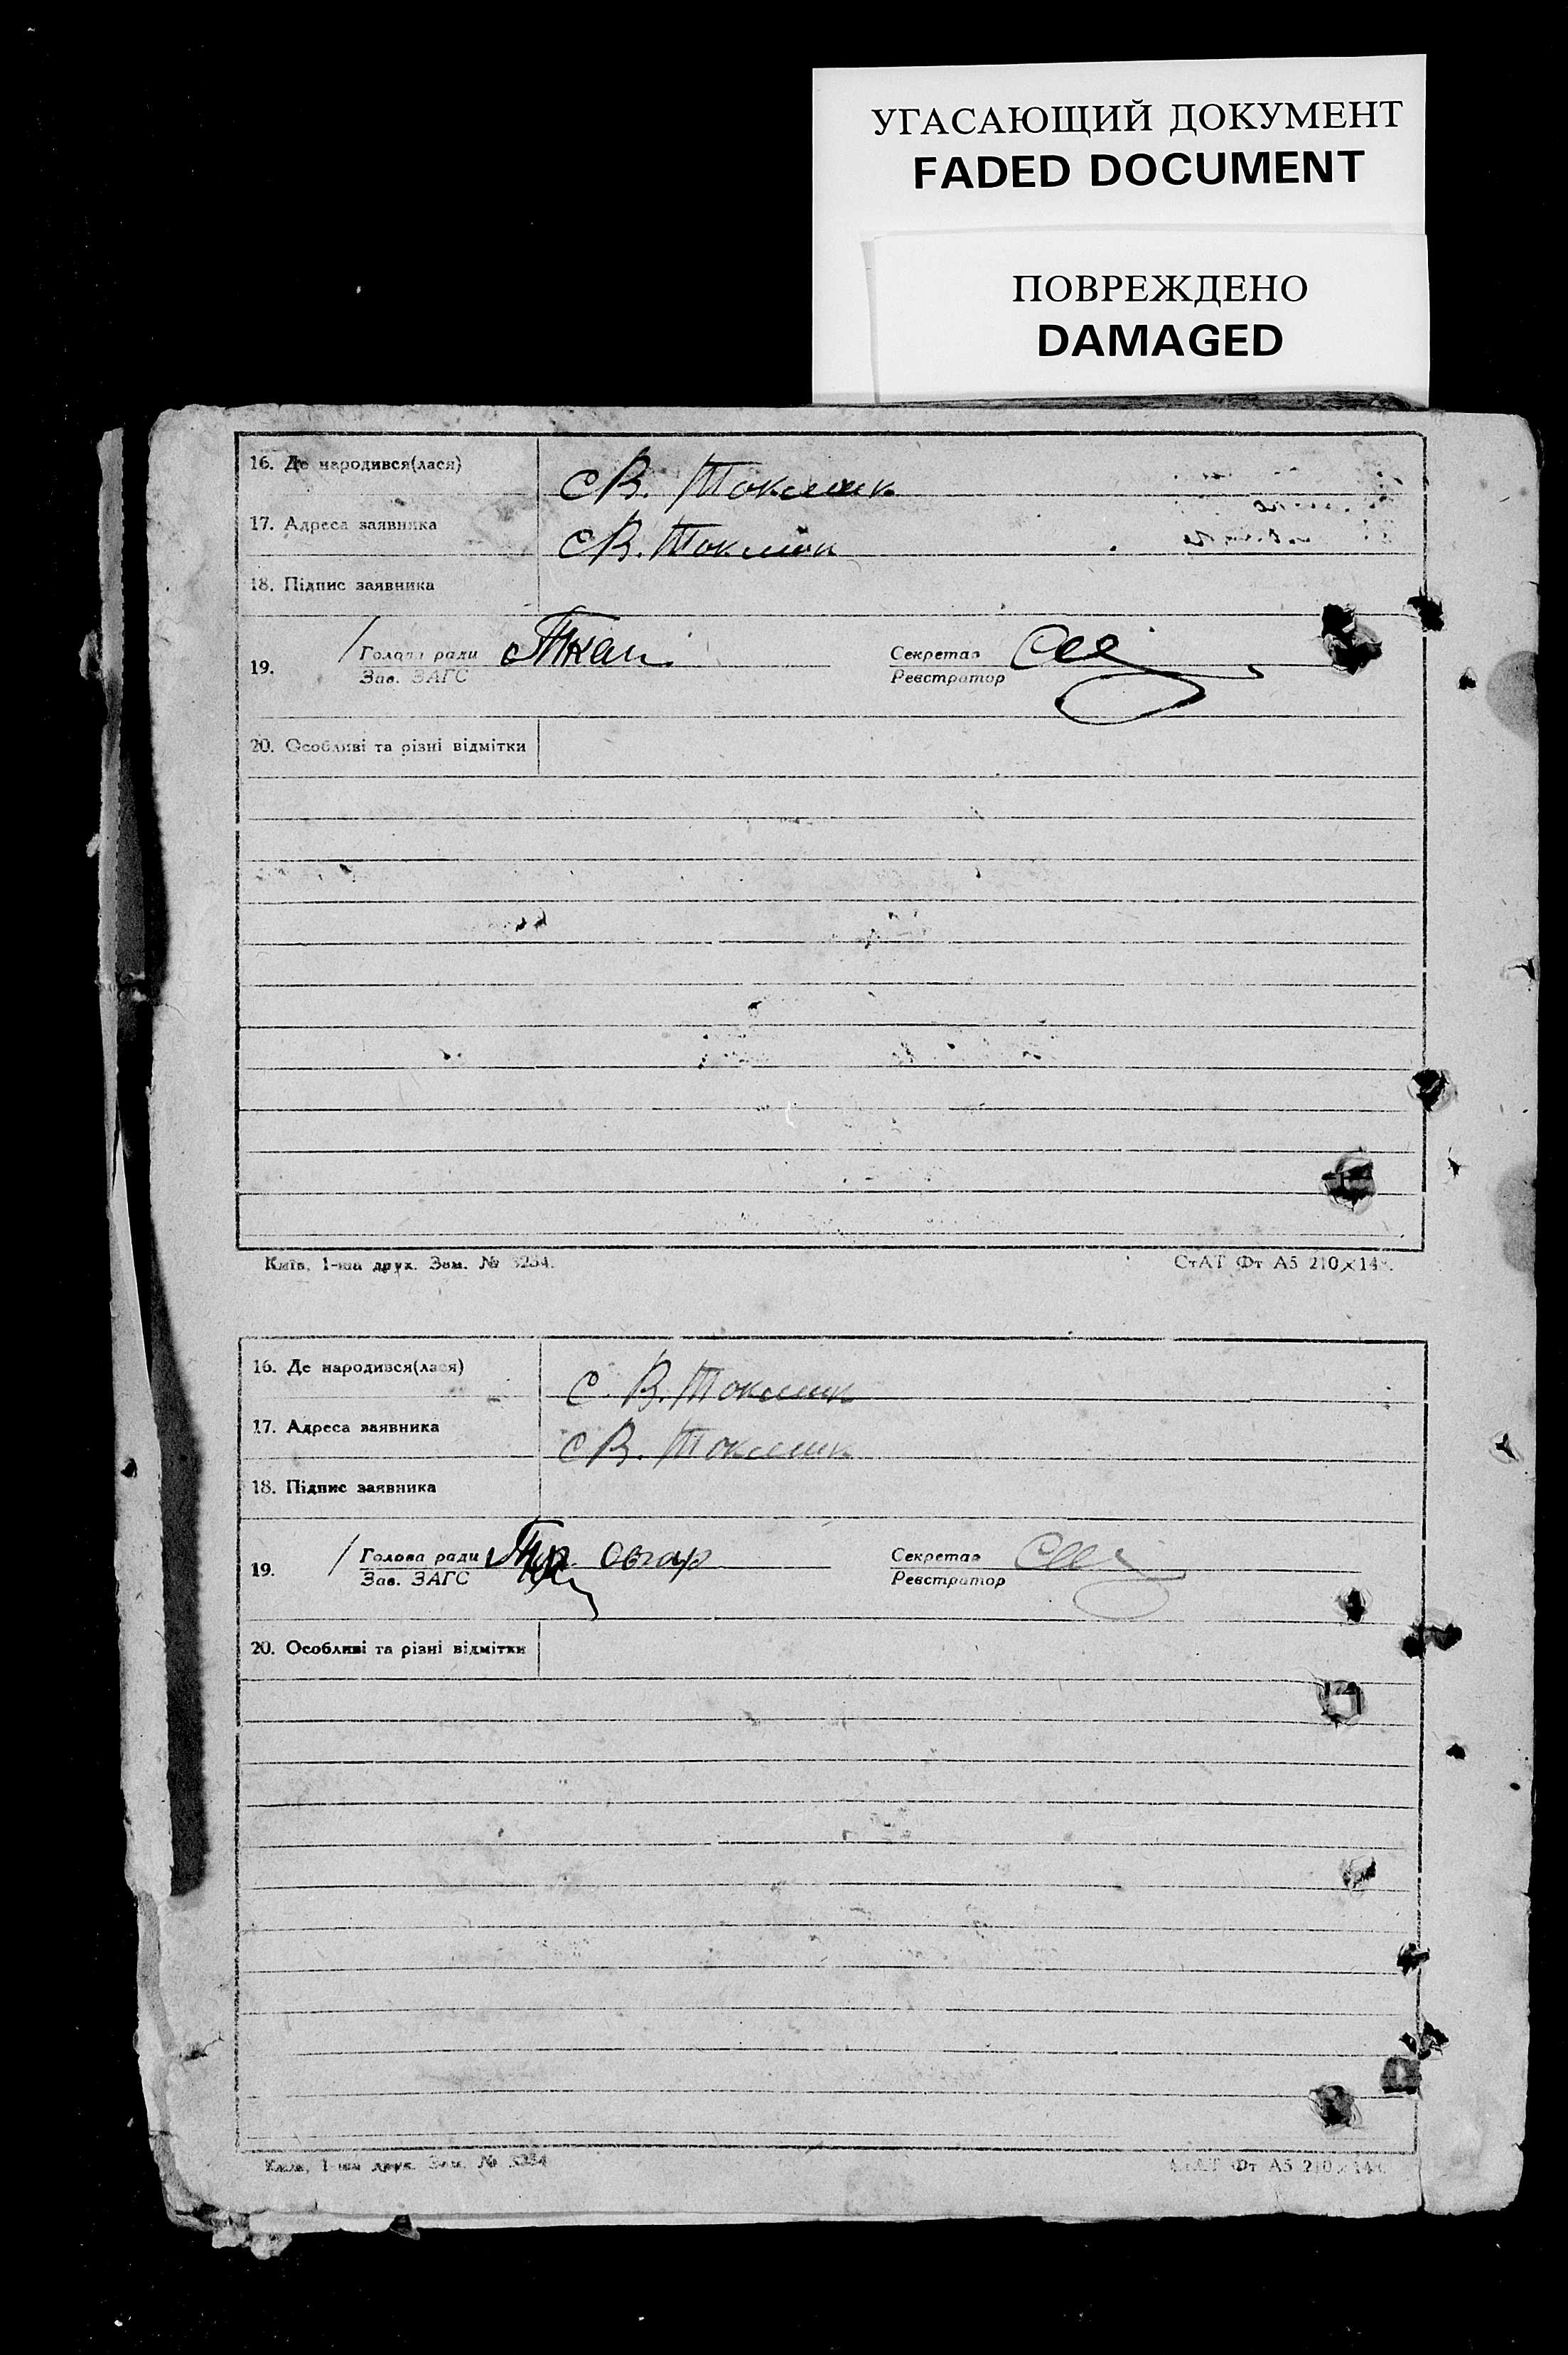 УГАСАЮЩИЙ ДОКУМЕНТ
FADED DOCUMENT
ПОВРЕЖДЕНО
DAMAGED
16. Де народився(лася) с В. Токмак
17. Адреса заявника с В. Токмак
18. Підпис заявника
19. Голова ради
Зав. ЗАГС
Секретар
Реєстратор
20. Особливі та різні відмітки
Київ, 1-ша друк. Зам. № 3254.
СтАТ Фт А5 210×148.
16. Де народився(лася) с. В. Токмак
17. Адреса заявника с В. Токмак
18. Підпис заявника
19. Голова ради
Зав. ЗАГС
Секретар
Реєстратор
20. Особливі та різні відмітки
Київ, 1-ша друк. Зам. № 3254
СтАТ Фт А5 210×148